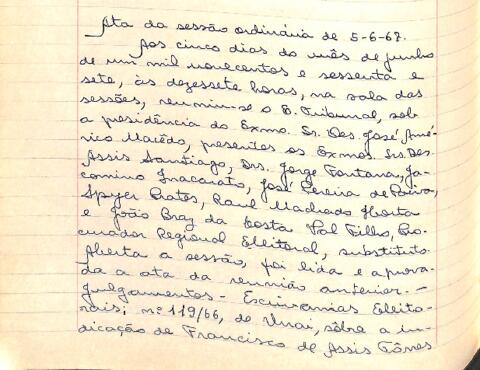 Ata da sessão ordinária de 5-6-67.
Aos cinco dias do mês de junho
de um mil novecentos e sessenta e
sete, às dezessete horas, na sala das
sessões, reuniu-se o E. Tribunal, sob
a presidência do Exmo. Sr. Des. José Amé-
rico Macêdo, presentes os Exmos. Srs. Des.
Assis Santiago, Drs. Jorge Fontana, Ja-
comino Inacarato, José Pereira de Paiva,
Spyer Prates, Raul Machado Horta
e João Braz da Costa Val Filho, Pro-
curador Regional Eleitoral, substituto.
Aberta a sessão, foi lida e aprova-
da a ata da reunião anterior. -
Julgamentos - Escrivanias Eleito-
rais: nº 119/66, de Unai, sôbre a in-
dicação de Francisco de Assis Tôrres